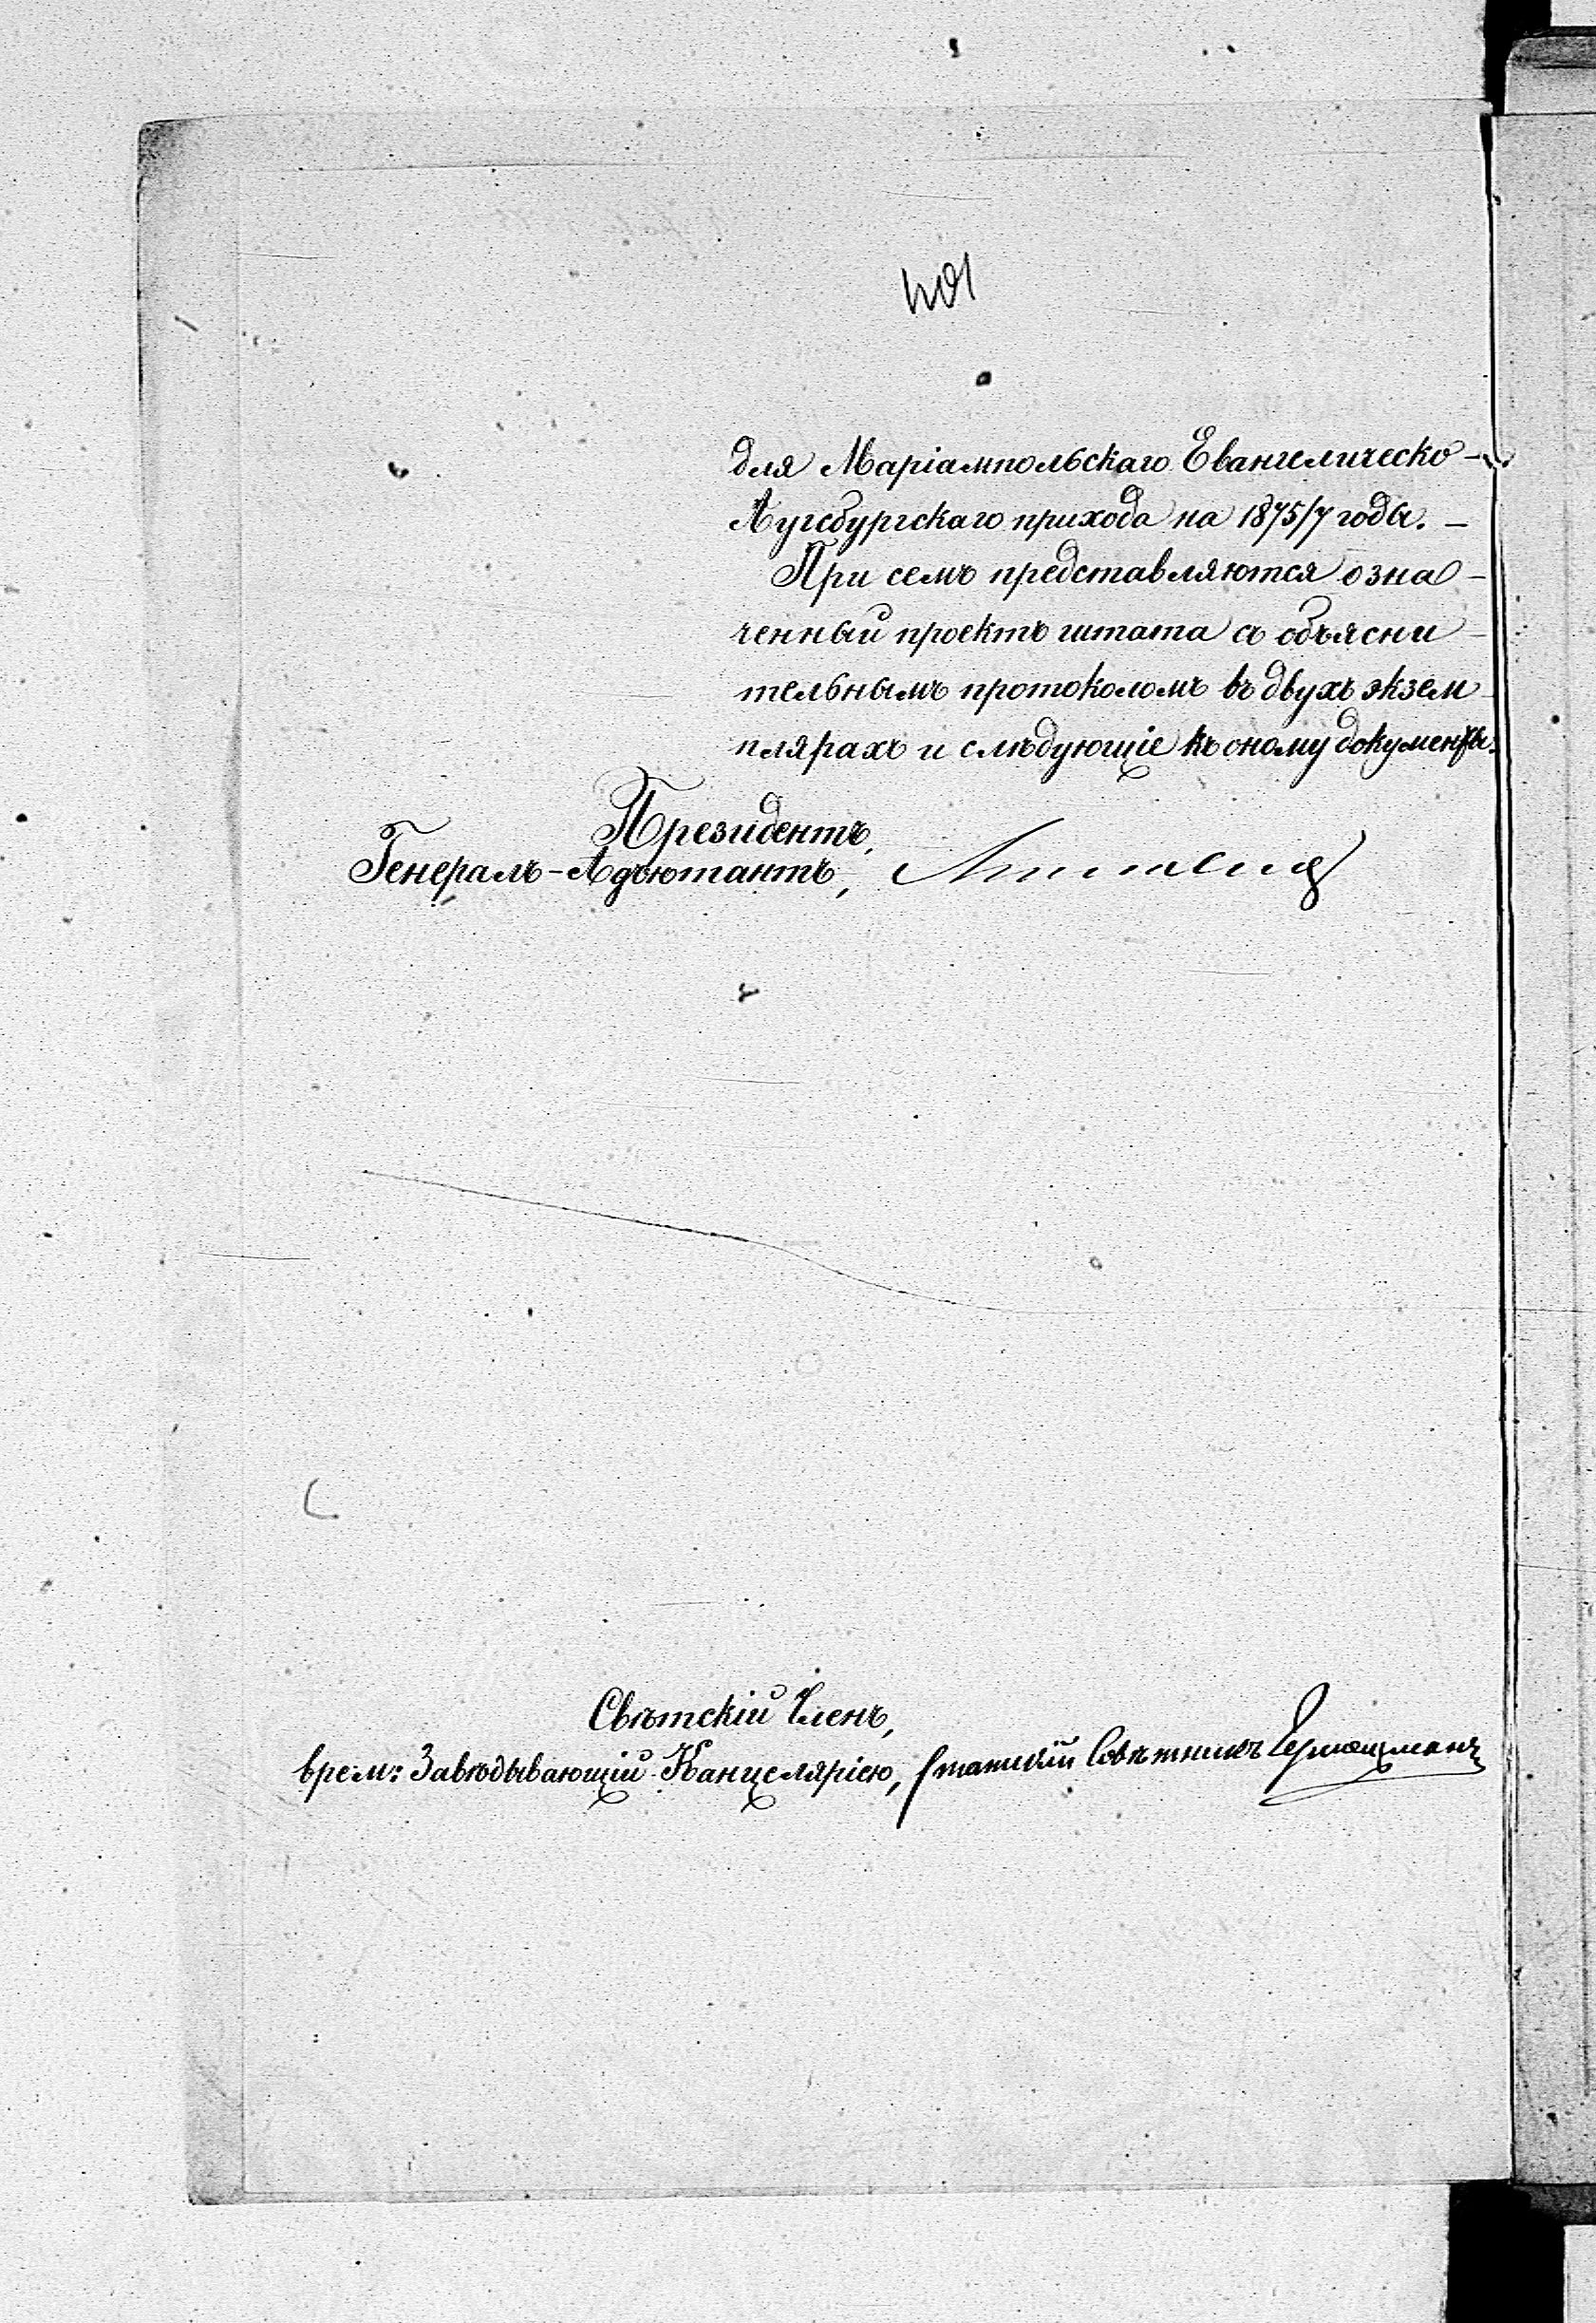 401
для Маріампольскаго Евангелическо-
Аугсбургскаго прихода на 1875/7 годы. –
При семъ представляются озна-
ченный проектъ штата съ объясни-
тельнымъ протоколомъ въ двухъ экзем-
плярахъ и слѣдующіе къ оному документы.
Президентъ,
Генералъ-Адъютантъ,
Свѣтскій Членъ,
врем: Завѣдывающій Канцеляріею, Статскій Совѣтникъ